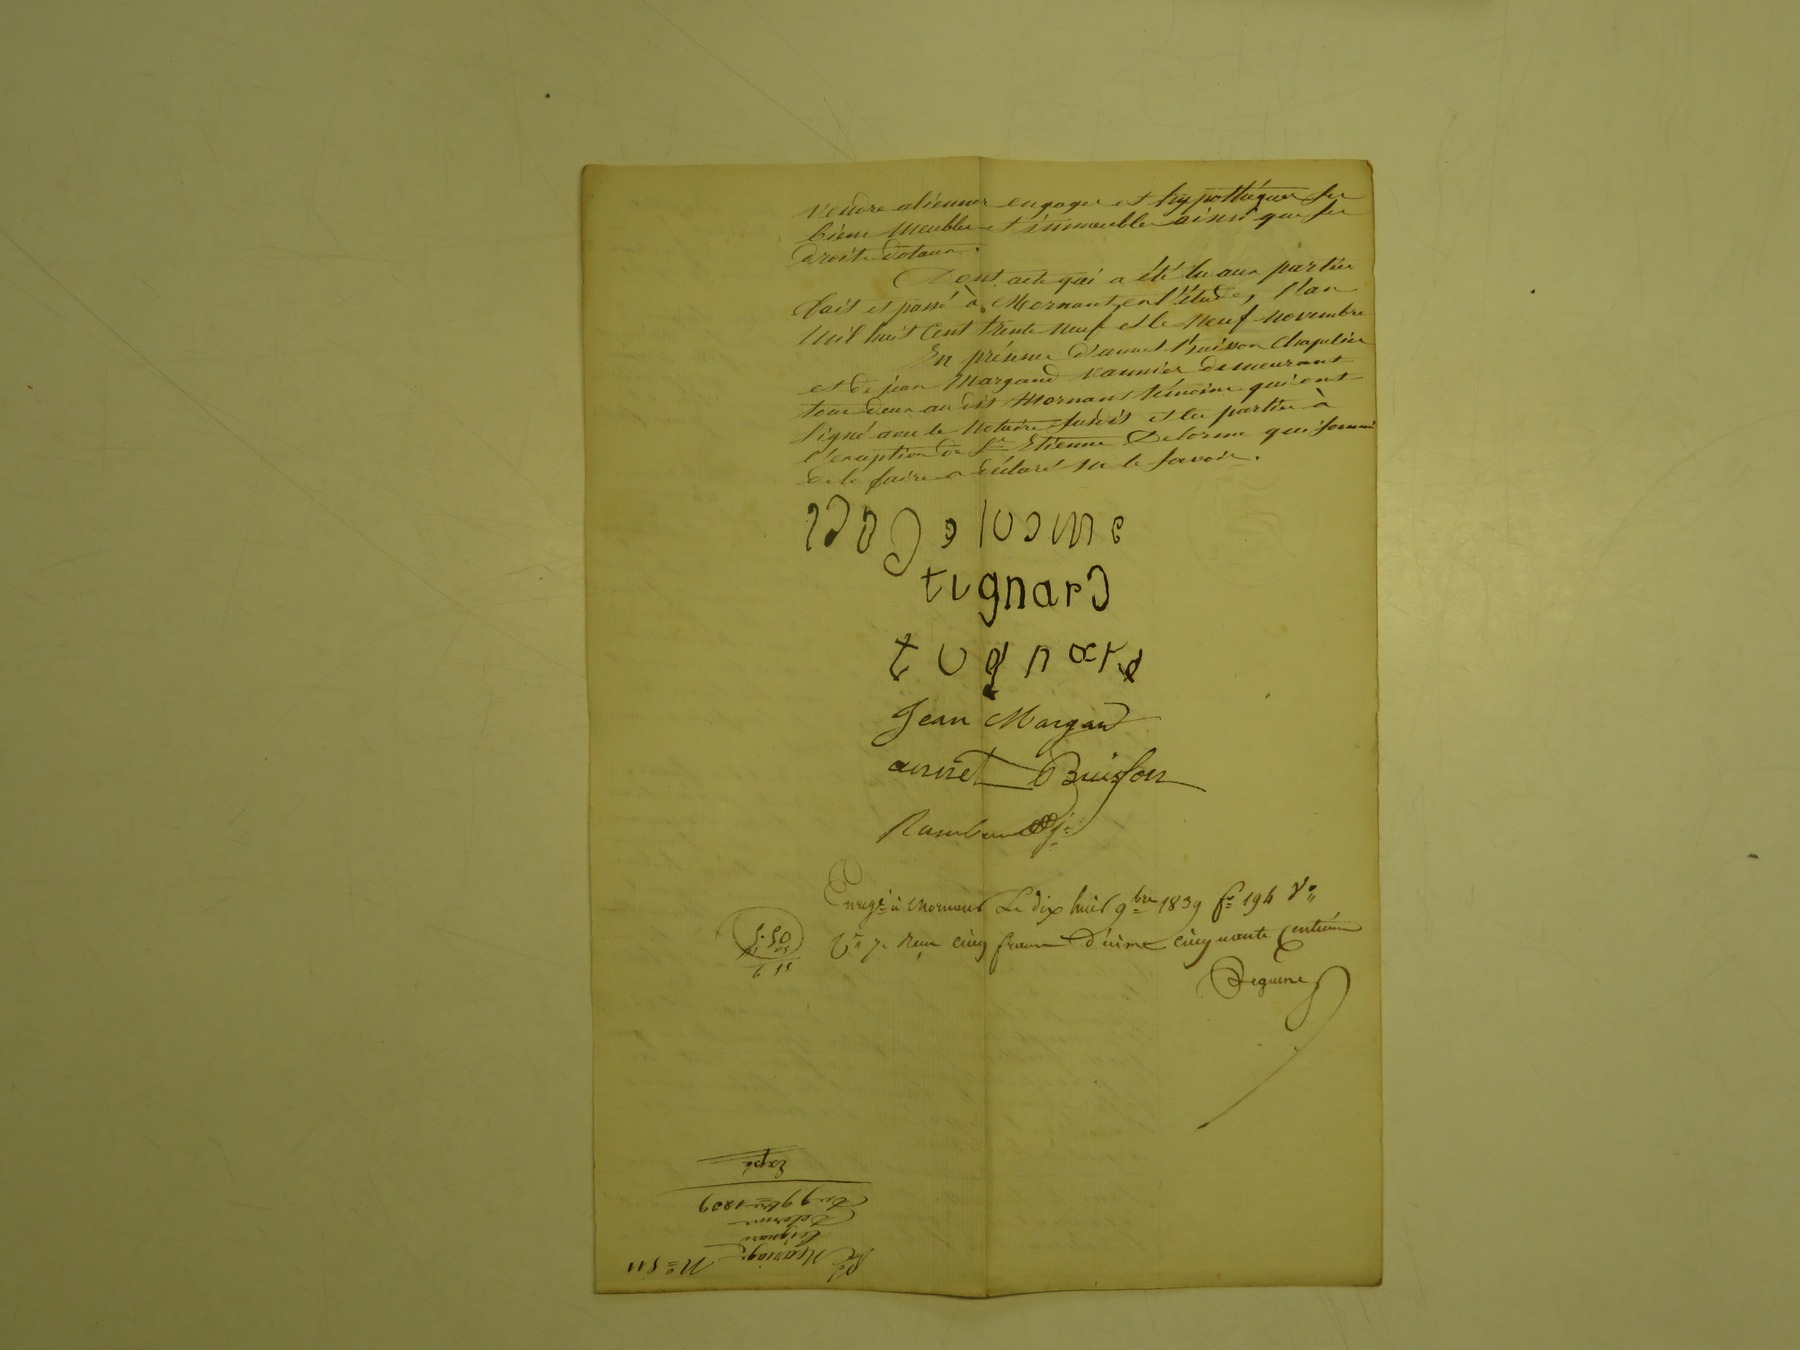 vendre aliénner engager et hypothéquer ses
biens meubles et immeubles ainsi que ses
droits dotaux.
Dont acte qui a été lu aux parties
fait et passé à Mornant en l'étude, l'an
mil huit cent trente neuf et le neuf novembre
En présence d'annet Buisson chapelier
et de jean Margand vannier demeurant
tous deux au dit Mornant témoins qui ont
signé avec le Notaire susdit et les parties à
l'exception de Sr Etienne Delorme qui sommé
de le faire a déclaré ne le savoir.
Delorme
tignard
tugnard
Jean Margand
annet Buisson
Enregé à Mornant Le dix huit 9bre 1839 fo 194 Vo
Reçu cinq francs décime cinquante centimes
5.50
Mariage
Delorme
du 9 9bre 1839
Expé
No 511